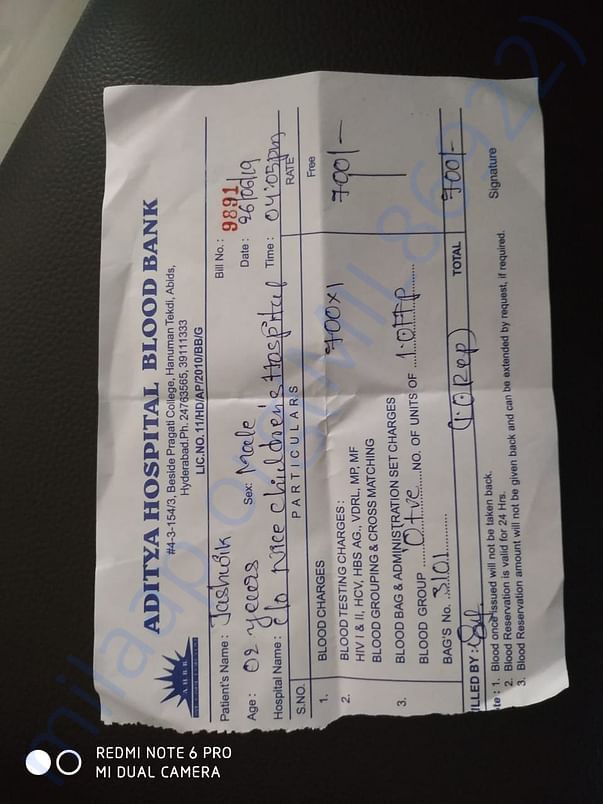 ADITYA HOSPITAL BLOOD BANK
#4-3-154/3, Beside Pragati College, Hanuman Tekdi, Abids,
Hyderabad.Ph. 24763565, 39111333
LIC.NO.11/HD/AP/2010/BB/G
AHBB
Bill No.: 9891
Patient's Name : Jashwik Date : 26/06/19
Age : 02 years Sex: Male Time : 04:05pm
Hospital Name : C/o Nice children's Hospital
S.NO. PARTICULARS RATE
1. BLOOD CHARGES Free
2. BLOOD TESTING CHARGES : 700x1 700/-
HIV I & II, HCV, HBS AG., VDRL, MP, MF
BLOOD GROUPING & CROSS MATCHING
3. BLOOD BAG & ADMINISTRATION SET CHARGES
BLOOD GROUP O+ve NO. OF UNITS OF 1.0FFP
BAG'S No. 3101
TOTAL 700/-
ILLED BY :
te : 1. Blood once issued will not be taken back.
2. Blood Reservation is valid for 24 Hrs.
3. Blood Reservation amount will not be given back and can be extended by request, if required.
Signature
milaap.org(MIL86922)
REDMI NOTE 6 PRO
MI DUAL CAMERA